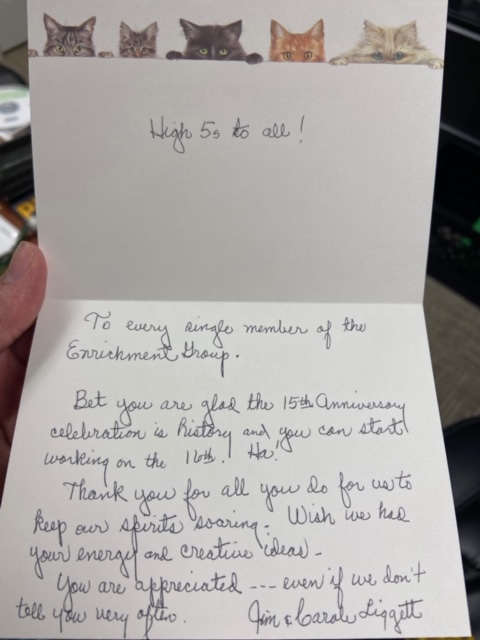 High 5s to all!
To every single member of the
Enrichment Group.
Bet you are glad the 15th Anniversary
celebration is history and you can start
working on the 16th! Ha!
Thank you for all you do for us to
keep our spirits soaring. Wish we had
your energy and creative ideas -
You are appreciated --- even if we don't
tell you very often. Jim & Carole Liggett